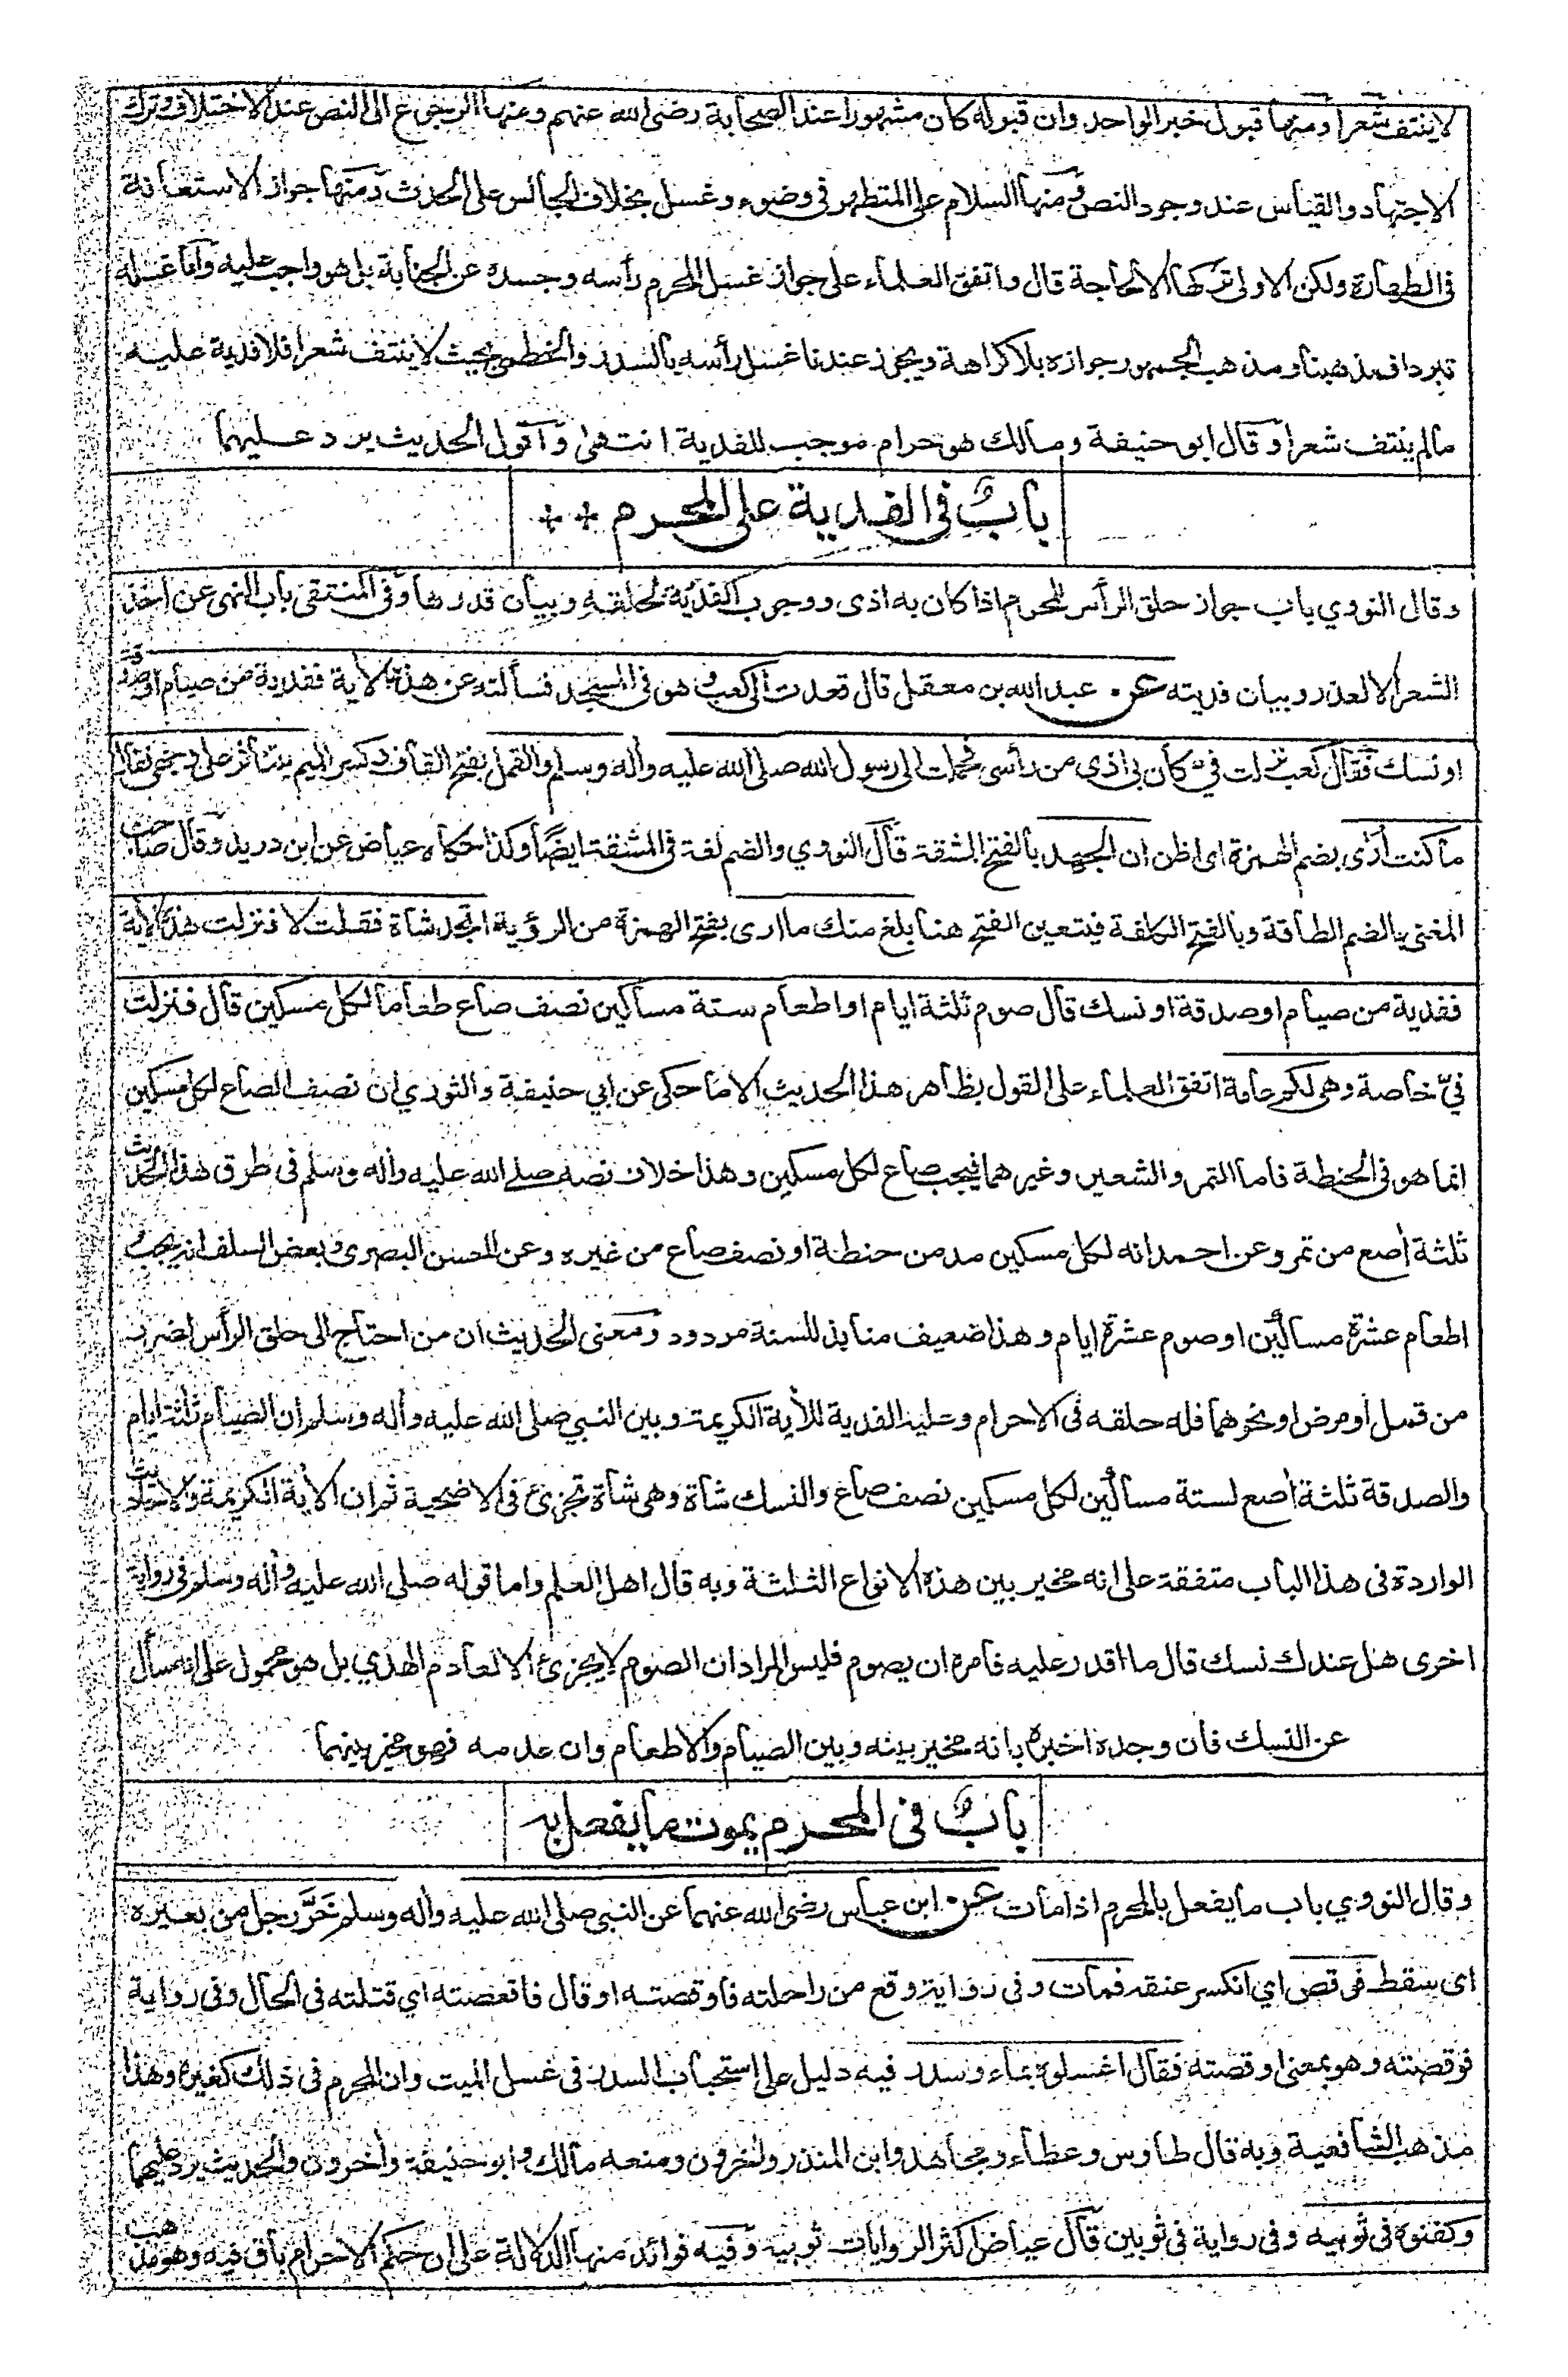 لاينتف شعرا ومنها قبول خبر الواحد وان قبوله كان مشهورا عند الصحابة رضى الله عنهم ومنها الرجوع الى النص عند الاختلاف وترك
الاجتهاد والقياس عند وجود النص ومنها السلام على المتطهر فى وضوء وغسل بخلاف الجالس على الحدث ومنها جواز الاستعانة
فى الطهارة ولكن الاولى تركها الا لحاجة قال واتفق العلماء على جواز غسل المحرم رأسه وجسده عن الجنابة بل هو واجب عليه واما غسله
تبردا فمذهبنا ومذهب الجمهور جوازه بلا كراهة ويجوز عندنا غسل رأسه بالسدر والخطمى بحيث لا ينتف شعرا فلا فدية عليه
مالم ينتف شعرا وقال ابو حنيفة ومالك هو حرام موجب للفدية انتهى واقول الحديث يرد عليهما
باب فى الفدية على المحرم
وقال النووي باب جواز حلق الرأس للمحرم اذا كان به اذى ووجوب الفدية لحلقه وبيان قدرها وفى المنتقى باب النهى عن اخذ
الشعر الا لعذر وبيان فديته عن عبد الله بن معقل قال قعدت الى كعب وهو فى المسجد فسألته عن هذه الأية ففدية من صيام او صدقة
او نسك فقال كعب نزلت فيّ كان بى اذى من رأسى فحملت الى رسول الله صلى الله عليه وأله وسلم والقمل بفتح القاف وكسر الميم يتناثر على وجهى فقال
ما كنت أرى بضم الهمزة اى اظن ان الجهد بالفتح المشقة قال النووي والضم لغة فى المشقة ايضًا وكذا حكاه عياض عن ابن دريد وقال صاحب
المغنى بالضم الطاقة وبالفتح الكلفة فيتعين الفتح هنا بلغ منك ما ارى بفتح الهمزة من الرؤية اتجد شاة فقلت لا فنزلت هذه الأية
ففدية من صيام او صدقة او نسك قال صوم ثلثة ايام او اطعام ستة مساكين نصف صاع طعاما لكل مسكين قال فنزلت
فيّ خاصة وهى لكم عامة اتفق العلماء على القول بظاهر هذا الحديث الا ما حكى عن ابي حنيفة والثوري ان نصف الصاع لكل مسكين
انما هو فى الحنطة فاما التمر والشعير وغيرهما فيجب صاع لكل مسكين وهذا خلاف نصه صلى الله عليه وأله وسلم فى طرق هذا الحديث
ثلثة أصع من تمر وعن احمد انه لكل مسكين مد من حنطة او نصف صاع من غيره وعن الحسن البصرى وبعض السلف انه يجب
اطعام عشرة مساكين او صوم عشرة ايام وهذا ضعيف منابذ للسنة مردود ومعنى الحديث ان من احتاج الى حلق الرأس لضرر
من قمل او مرض او نحوهما فله حلقه فى الاحرام وعليه الفدية للأية الكريمة وبين النبي صلى الله عليه وأله وسلم ان الصيام ثلثة ايام
والصدقة ثلثة أصع لستة مساكين لكل مسكين نصف صاع والنسك شاة وهى شاة تجزئ فى الاضحية ثم ان الأية الكريمة والاحاديث
الواردة فى هذا الباب متفقة على انه مخير بين هذه الانواع الثلثة وبه قال اهل العلم واما قوله صلى الله عليه وأله وسلم فى رواية
اخرى هل عندك نسك قال ما اقدر عليه فامره ان يصوم فليس المراد ان الصوم لا يجزئ الا لعادم الهدي بل هو محمول على انه سأل
عن النسك فان وجده اخبره بانه مخير بينه وبين الصيام والاطعام وان عدمه فهو مخير بينهما
باب فى المحرم يموت ما يفعل به
وقال النووي باب ما يفعل بالمحرم اذا مات عن ابن عباس رضى الله عنهما عن النبى صلى الله عليه وأله وسلم خَرَّ رجل من بعيره
اى سقط فوقص اي انكسر عنقه فمات وفى رواية وقع من راحلته فاوقصته او قال فاقعصته اي قتلته فى الحال وفى رواية
فوقصته وهو بمعنى اوقصته فقال اغسلوه بماء وسدر فيه دليل على استحباب السدر فى غسل الميت وان المحرم فى ذلك كغيره وهذا
مذهب الشافعية وبه قال طاوس وعطاء ومجاهد وابن المنذر وأخرون ومنعه مالك وابو حنيفة وأخرون والحديث يرد عليهما
وكفنوه فى ثوبيه وفى رواية فى ثوبين قال عياض اكثر الروايات ثوبيه وفيه فوائد منها الدلالة على ان حكم الاحرام باق فيه وهو مذهب